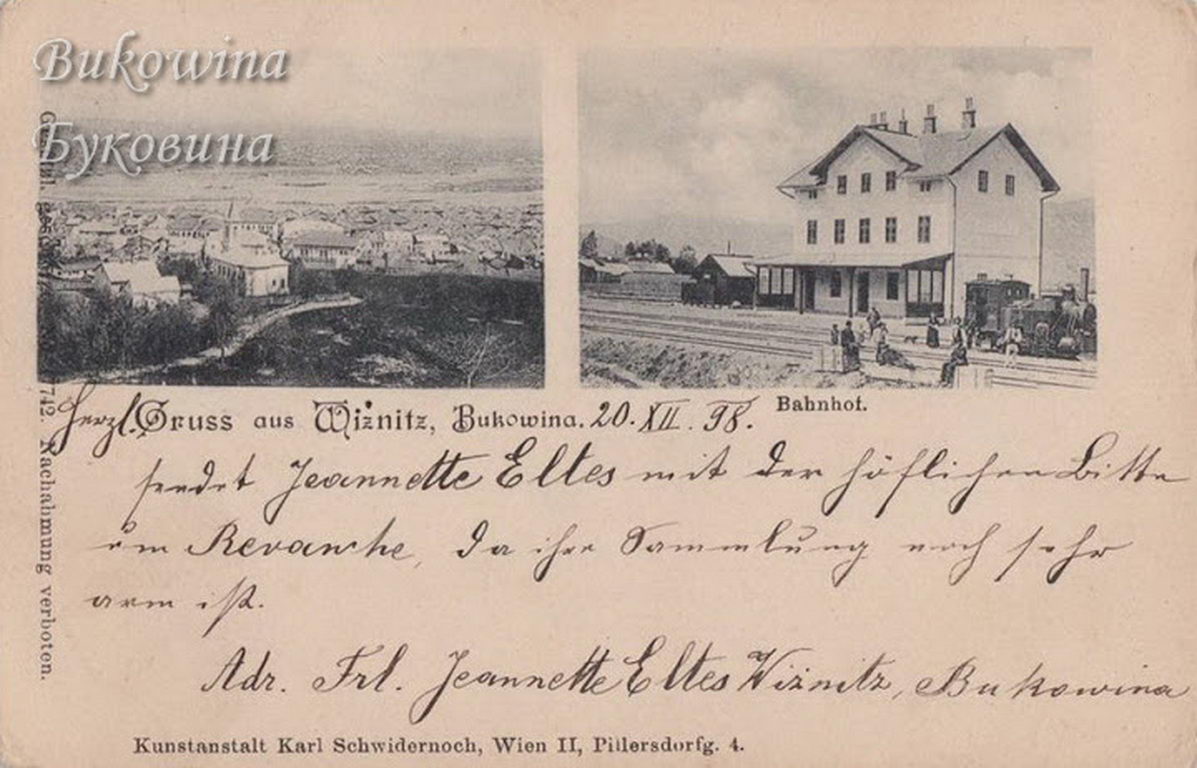 Bukowina
Буковина
Herzl. Gruss aus Wižnitz, Bukowina. 20. XII. 98.
Bahnhof.
sendet Jeannette Eltes mit der höflichen Bitte
um Revanche, da ihre Sammlung noch sehr
arm ist.
Adr. Frl. Jeannette Eltes Wižnitz, Bukowina
Kunstanstalt Karl Schwidernoch, Wien II, Pillersdorfg. 4.
742. Nachahmung verboten.